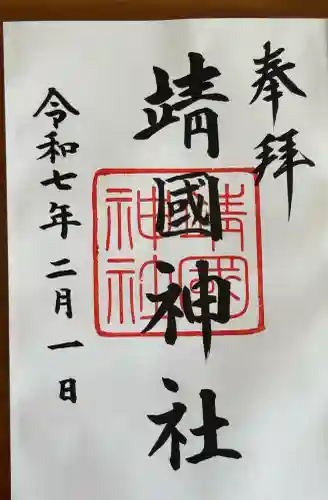 奉拝
靖國神社
靖國神社
令和七年二月一日